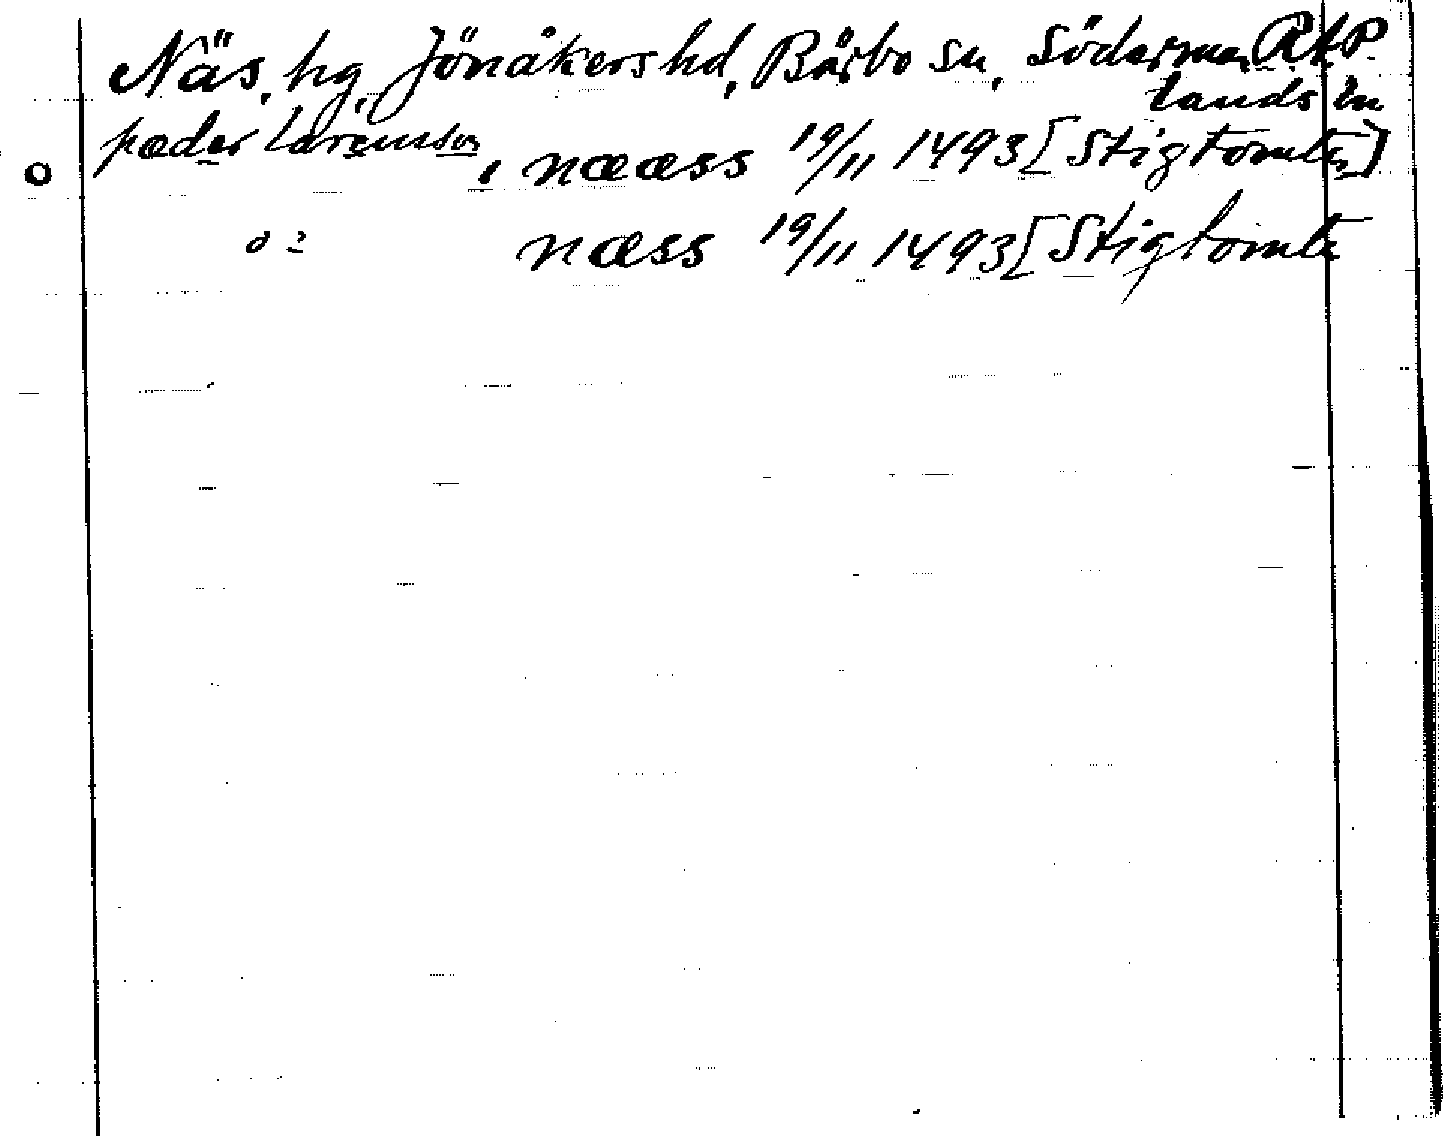 Näs, hg, Jönåkers hd, Bårbo sn, Söderman RAP
lands län
pæder larensson, i næææss 19/11 1493 [Stigtomta]
o 2 næss 19/11 1493 [Stigtomta